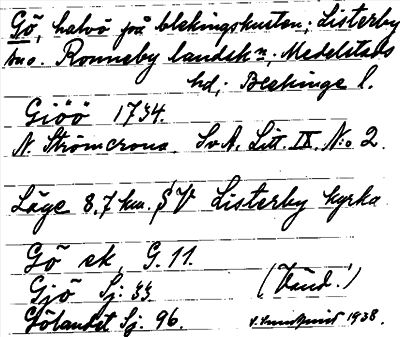 Gö, halvö på blekingskusten; Listerby
sn o. Ronneby landsk:n; Medelstads
hd; Blekinge l.
Giöö 1734.
N. Strömcrona. SvA. Litt. IX. N:o 2.
Läge 8,7 km. SV Listerby kyrka
Gö ek. G. 11.
Gjö Sj: 33 (Vänd.)
Gölandet Sj. 96. 1938.